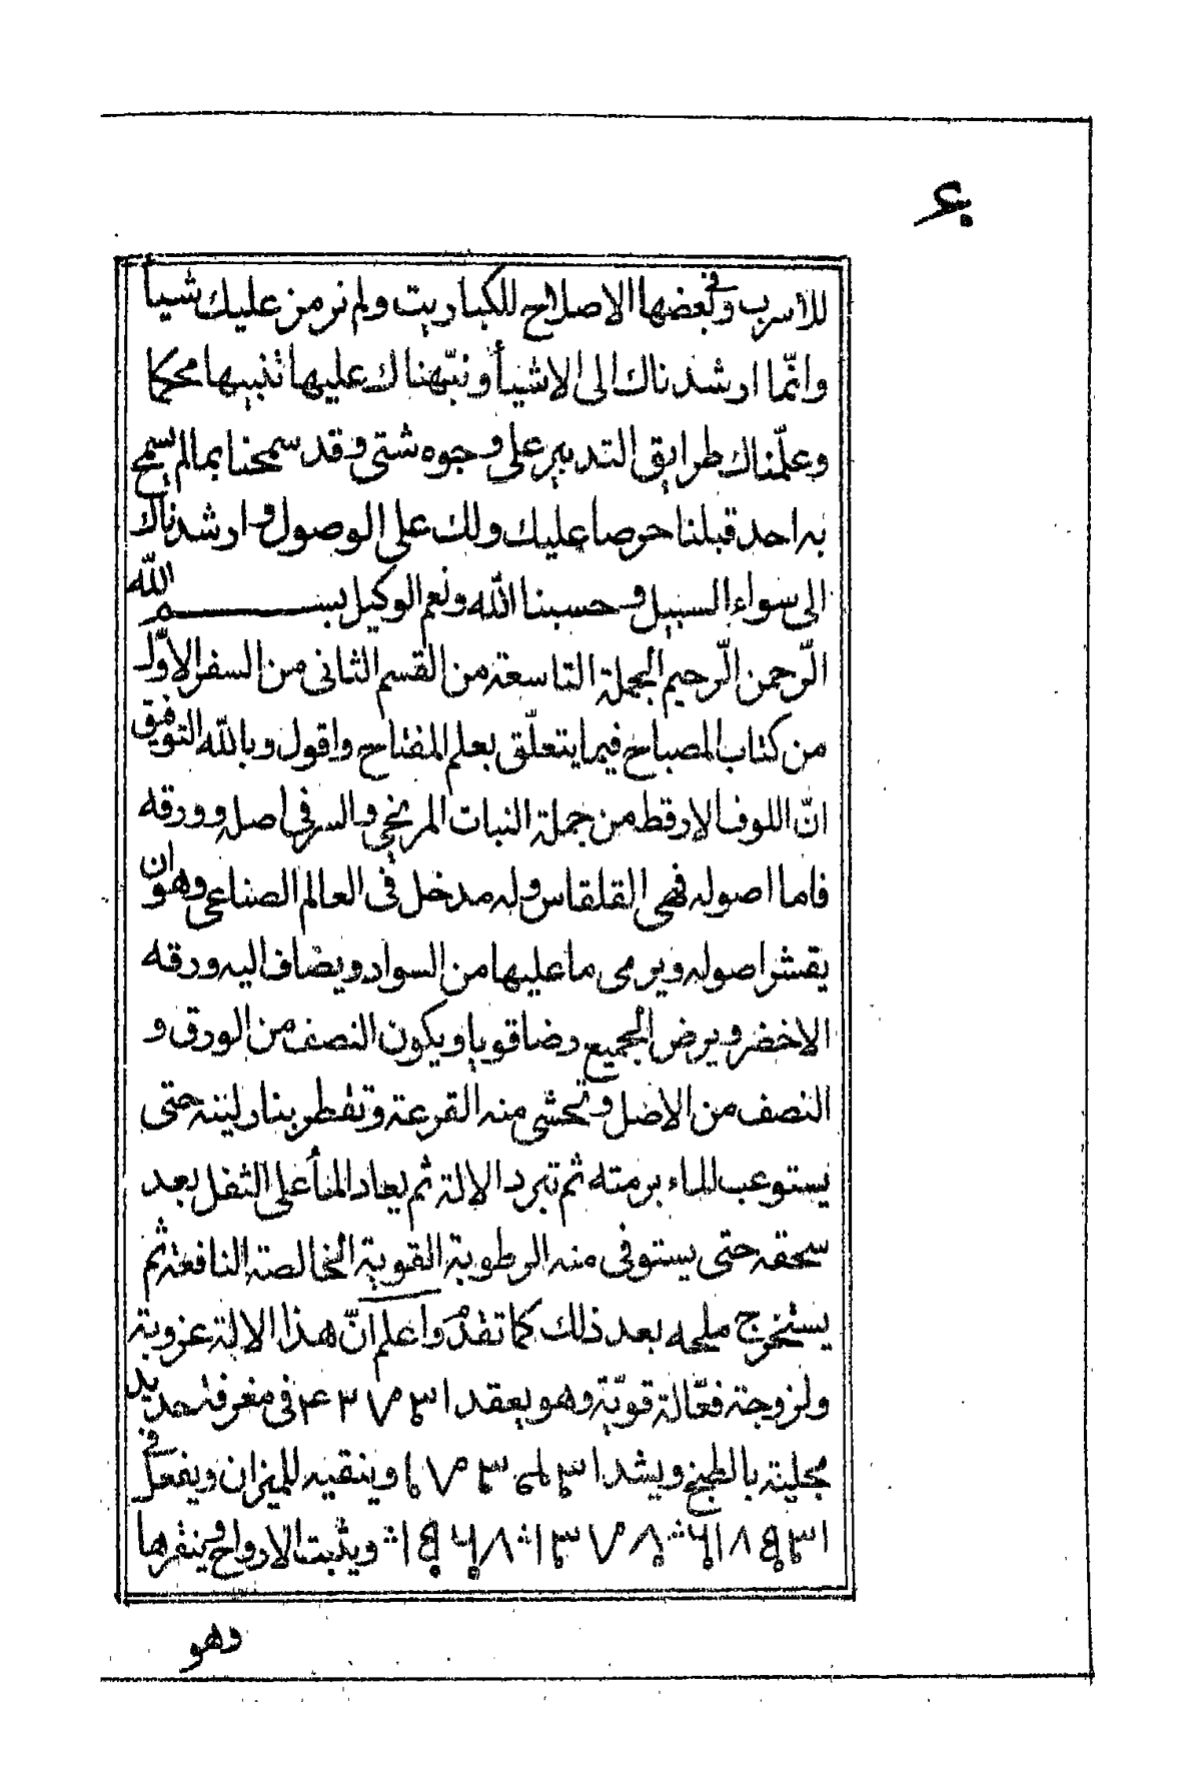 للأسرب وفى بعضها الاصلاح للكباريت ولم نرمز عليك شيأ
وانّما ارشدناك الى الاشيأ ونبّهناك عليها تنبيها محكما
وعلّمناك طرايق التدبير على وجوه شتى وقد سمحنا بما لم يسمح
به احد قبلنا حرصا عليك ولك على الوصول وارشدناك
الى سواء السبيل وحسبنا الله ونعم الوكيل بسم الله
الرّحمن الرّحيم الجملة التاسعة من القسم الثانى من السفر الاوّل
من كتاب المصباح فيما يتعلّق بعلم المفتاح واقول وبالله التوفيق
انّ اللوف الارقط من جملة النبات المريخى والسر فى اصله وورقه
فاما اصوله فهى القلقاس وله مدخل فى العالم الصناعى وهو ان
يقشر اصوله ويرمى ما عليها من السواد ويضاف اليه ورقه
الاخضر ويرض الجميع رضا قويا ويكون النصف من الورق و
النصف من الاصل وتحشى منه القرعة وتقطر بنار لينة حتى
يستوعب الماء برمته ثم تبرد الالة ثم يعاد المأ على الثفل بعد
سحقه حتى يستوفى منه الرطوبة القوية الخالصة النافعة ثم
يستخرج ملحه بعد ذلك كما تقدم واعلم انّ هذا الالة عزوية
ولزوجة فعّالة قويّة وهو يعقد ا فى مغرفة حديد
مجلية بالطبخ ويشد ا وينقيه للميزان ويفعل فى
ويثبت الارواح وينفرها
وهو